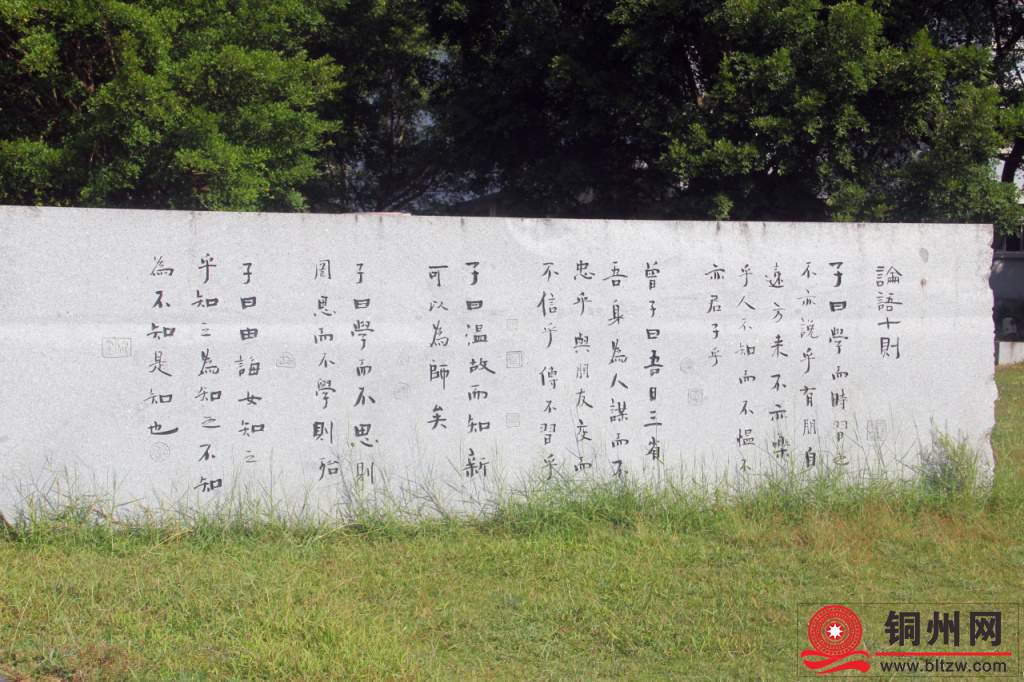 論語十則
子曰學而時習之
不亦說乎有朋自
遠方来不亦樂
乎人不知而不愠不
亦君子乎
曾子曰吾日三省
吾身為人謀而不
忠乎與朋友交而
不信乎傳不習乎
子曰温故而知新
可以為師矣
子曰學而不思則
罔思而不學則殆
子曰由誨女知之
乎知之為知之不知
為不知是知也
铜州网
www.bltzw.com